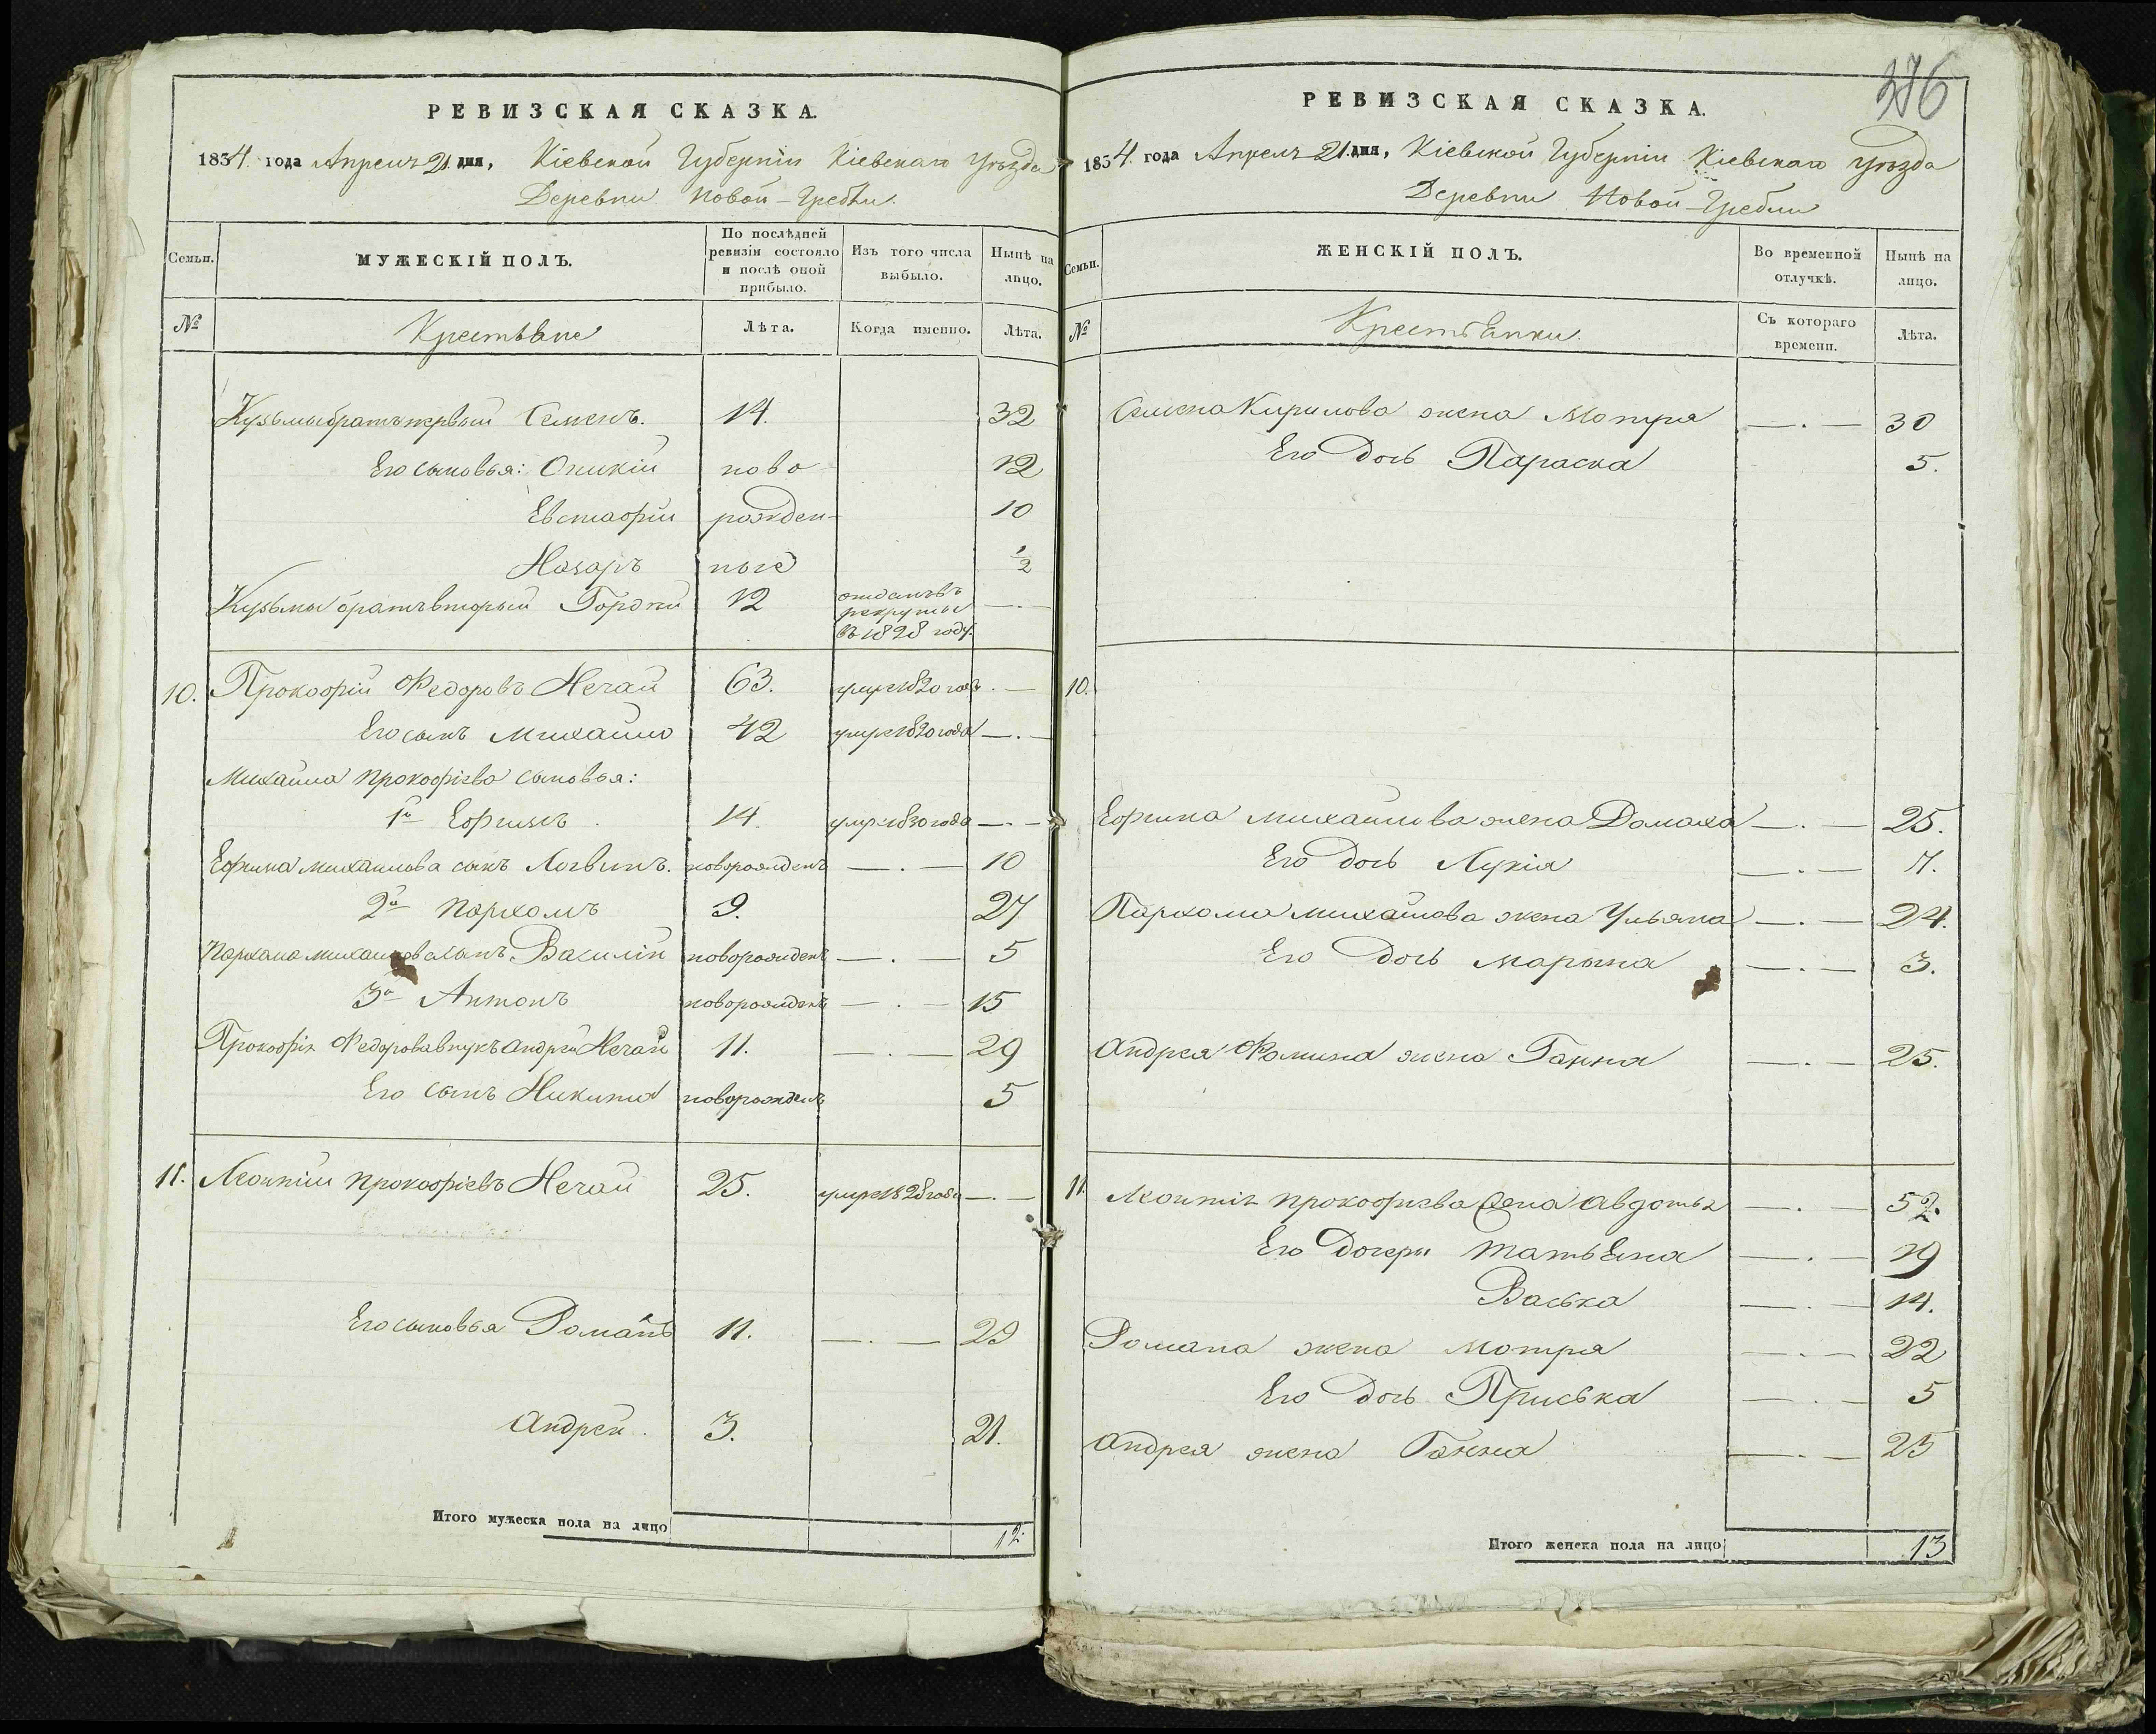 376
РЕВИЗСКАЯ СКАЗКА.
1834 года Апреля 21 дня, Кіевской Губерніи Кіевскаго Уѣзда
Деревни Новой-Гребли.
Семьи. МУЖЕСКІЙ ПОЛЪ. По послѣдней ревизіи состояло и послѣ оной прибыло. Изъ того числа выбыло. Нынѣ на лицо.
№ Крестьяне Лѣта. Когда именно. Лѣта.
Кузьмы братъ первый Семенъ. 14. 32
Его сыновья: Оникій ново 12
Евстафій рожден- 10
Назаръ ные 1/2
Кузьмы братъ вторый Гордѣй 12 отданъ въ рекруты въ 1828 году. —.—
10. Прокофій Федоровъ Нечай 63. умре 1820 года —.—
Его сынъ Михайло 42 умре 1820 года —.—
Михайла Прокофіева сыновья:
1й Ефимъ 14. умре 1830 года —.—
Ефима Михайлова сынъ Логвинъ. новорожденъ —.— 10
2й Пархомъ 9. 27
Пархома Михайлова сынъ Василій новорожденъ —.— 5
3й Антонъ новорожденъ —.— 15
Прокофія Федорова внукъ Андрей Нечай 11. —.— 29
Его сынъ Никита новорожденъ 5
11. Леонтій Прокофіевъ Нечай 25. умре 1828 года —.—
Его сыновья Романъ 11. —.— 29
Андрей. 3. 21.
Итого мужеска пола на лицо 12.
РЕВИЗСКАЯ СКАЗКА.
1834 года Апреля 21 дня, Кіевской Губерніи Кіевскаго Уѣзда
Деревни Новой-Гребли
Семьи. ЖЕНСКІЙ ПОЛЪ. Во временной отлучкѣ. Нынѣ на лицо.
№ Крестьянки. Съ котораго времени. Лѣта.
Семена Кирилова жена Мотря —.— 30
Его дочь Параска 5.
10.
Ефима Михайлова жена Домаха —.— 25.
Его дочь Лукія —.— 7.
Пархома Михайлова жена Ульяна —.— 24.
Его дочь Марына —.— 3.
Андрея Фомина жена Ганна —.— 25.
11. Леонтія Прокофиева жена Авдотья —.— 52.
Его дочери Татьяна —.— 19
Васька —.— 14.
Романа жена Мотря —.— 22
Его дочь Приська —.— 5
Андрея жена Ганна —.— 25
Итого женска пола на лицо 13